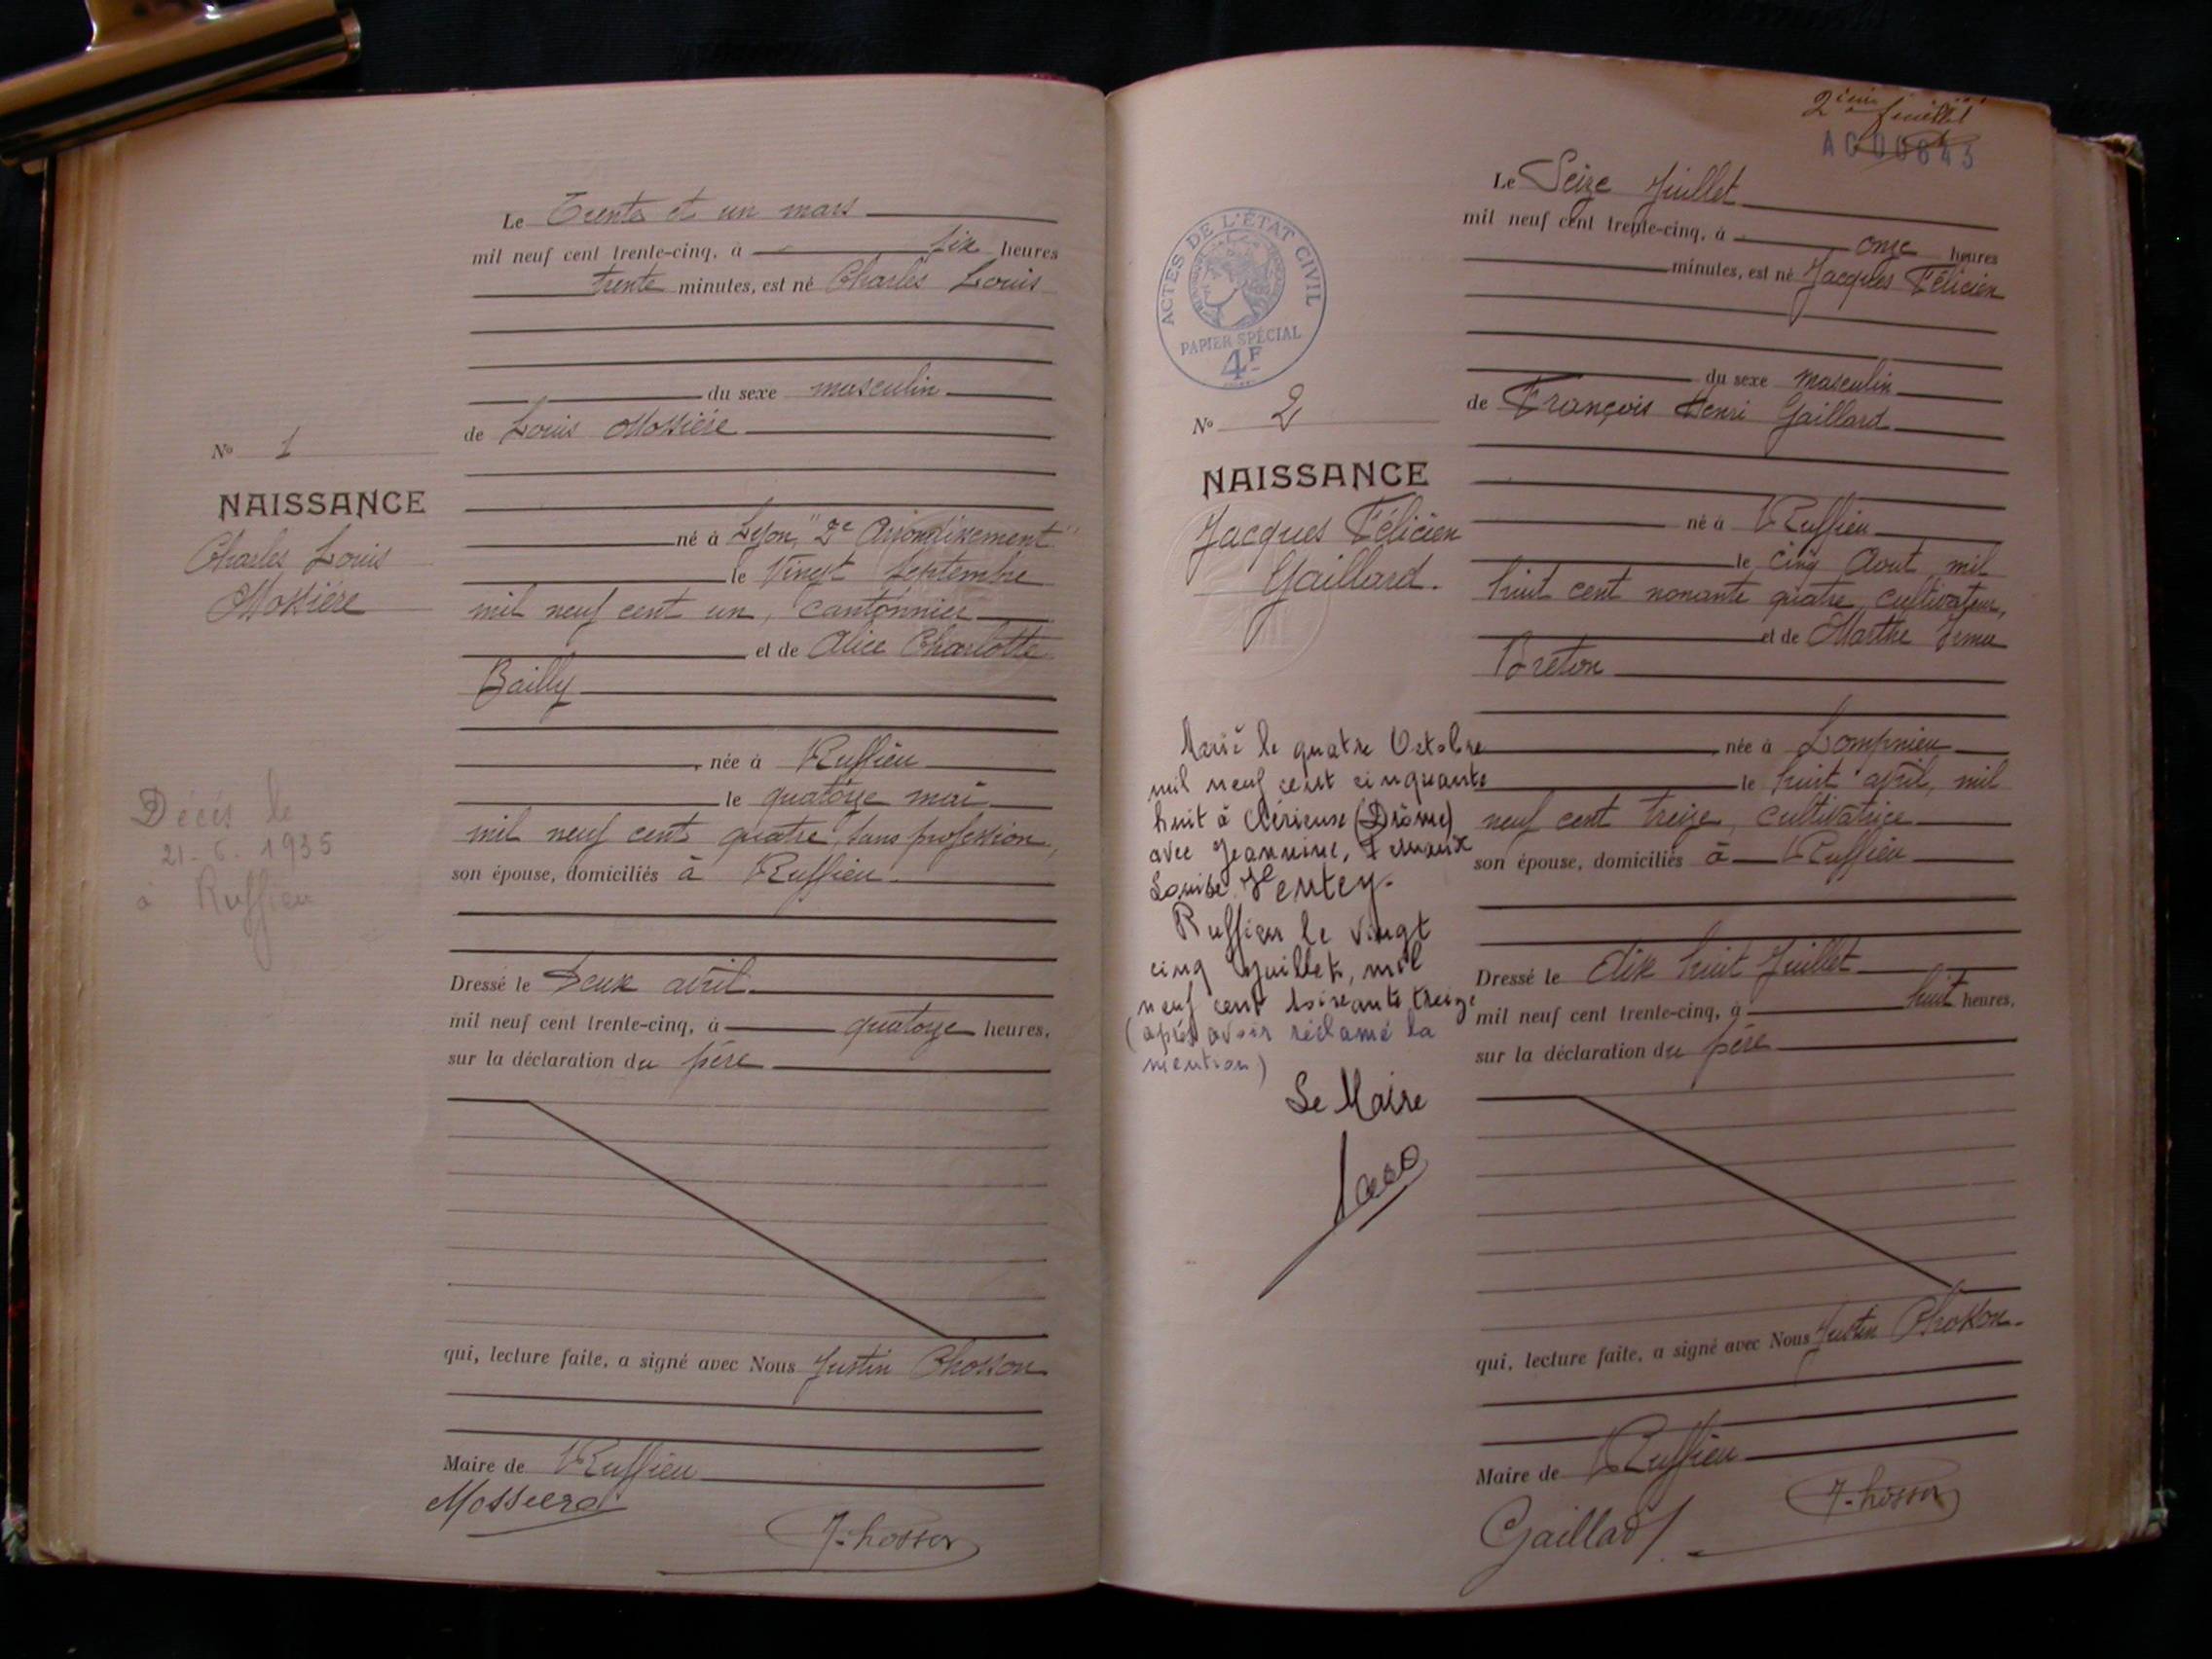 Le Trente et un mars
mil neuf cent trente-cinq, à six heures
trente minutes, est né Charles Louis
du sexe masculin
de Louis Mossière
né à Lyon "2e Arrondissement"
le Vingt Septembre
mil neuf cent un, cantonnier
et de Alice Charlotte
Bailly
née à Ruffieu
le quatorze mai
mil neuf cent quatre, sans profession,
son épouse, domiciliés à Ruffieu.
Dressé le Deux avril
mil neuf cent trente-cinq, à quatorze heures,
sur la déclaration du père
qui, lecture faite, a signé avec Nous Justin Chosson
Maire de Ruffieu
Mossiere
J. Chosson
No 1
NAISSANCE
Charles Louis
Mossière
Décès le
21-6-1935
à Ruffieu
2ième feuillet
Le Seize Juillet
mil neuf cent trente-cinq, à onze heures
minutes, est né Jacques Félicien
du sexe masculin
de François Henri Gaillard
né à Ruffieu
le cinq Aout mil
huit cent nonante quatre, cultivateur,
et de Marthe Irma
Bréton
née à Lompnieu
le huit avril, mil
neuf cent treize, cultivatrice
son épouse, domiciliés à Ruffieu
Dressé le dix huit Juillet
mil neuf cent trente-cinq, à huit heures,
sur la déclaration du père
qui, lecture faite, a signé avec Nous Justin Chosson
Maire de Ruffieu
Gaillard
J. Chosson
ACTES DE L'ÉTAT CIVIL
PAPIER SPÉCIAL
4F
No 2
NAISSANCE
Jacques Félicien
Gaillard.
Marié le quatre Octobre
mil neuf cent cinquante
huit à Clérieux (Drôme)
avec Jeannine,
Louise
Ruffieu le vingt
cinq Juillet, mil
neuf cent soixante treize
(après avoir réclamé la
mention)
Le Maire